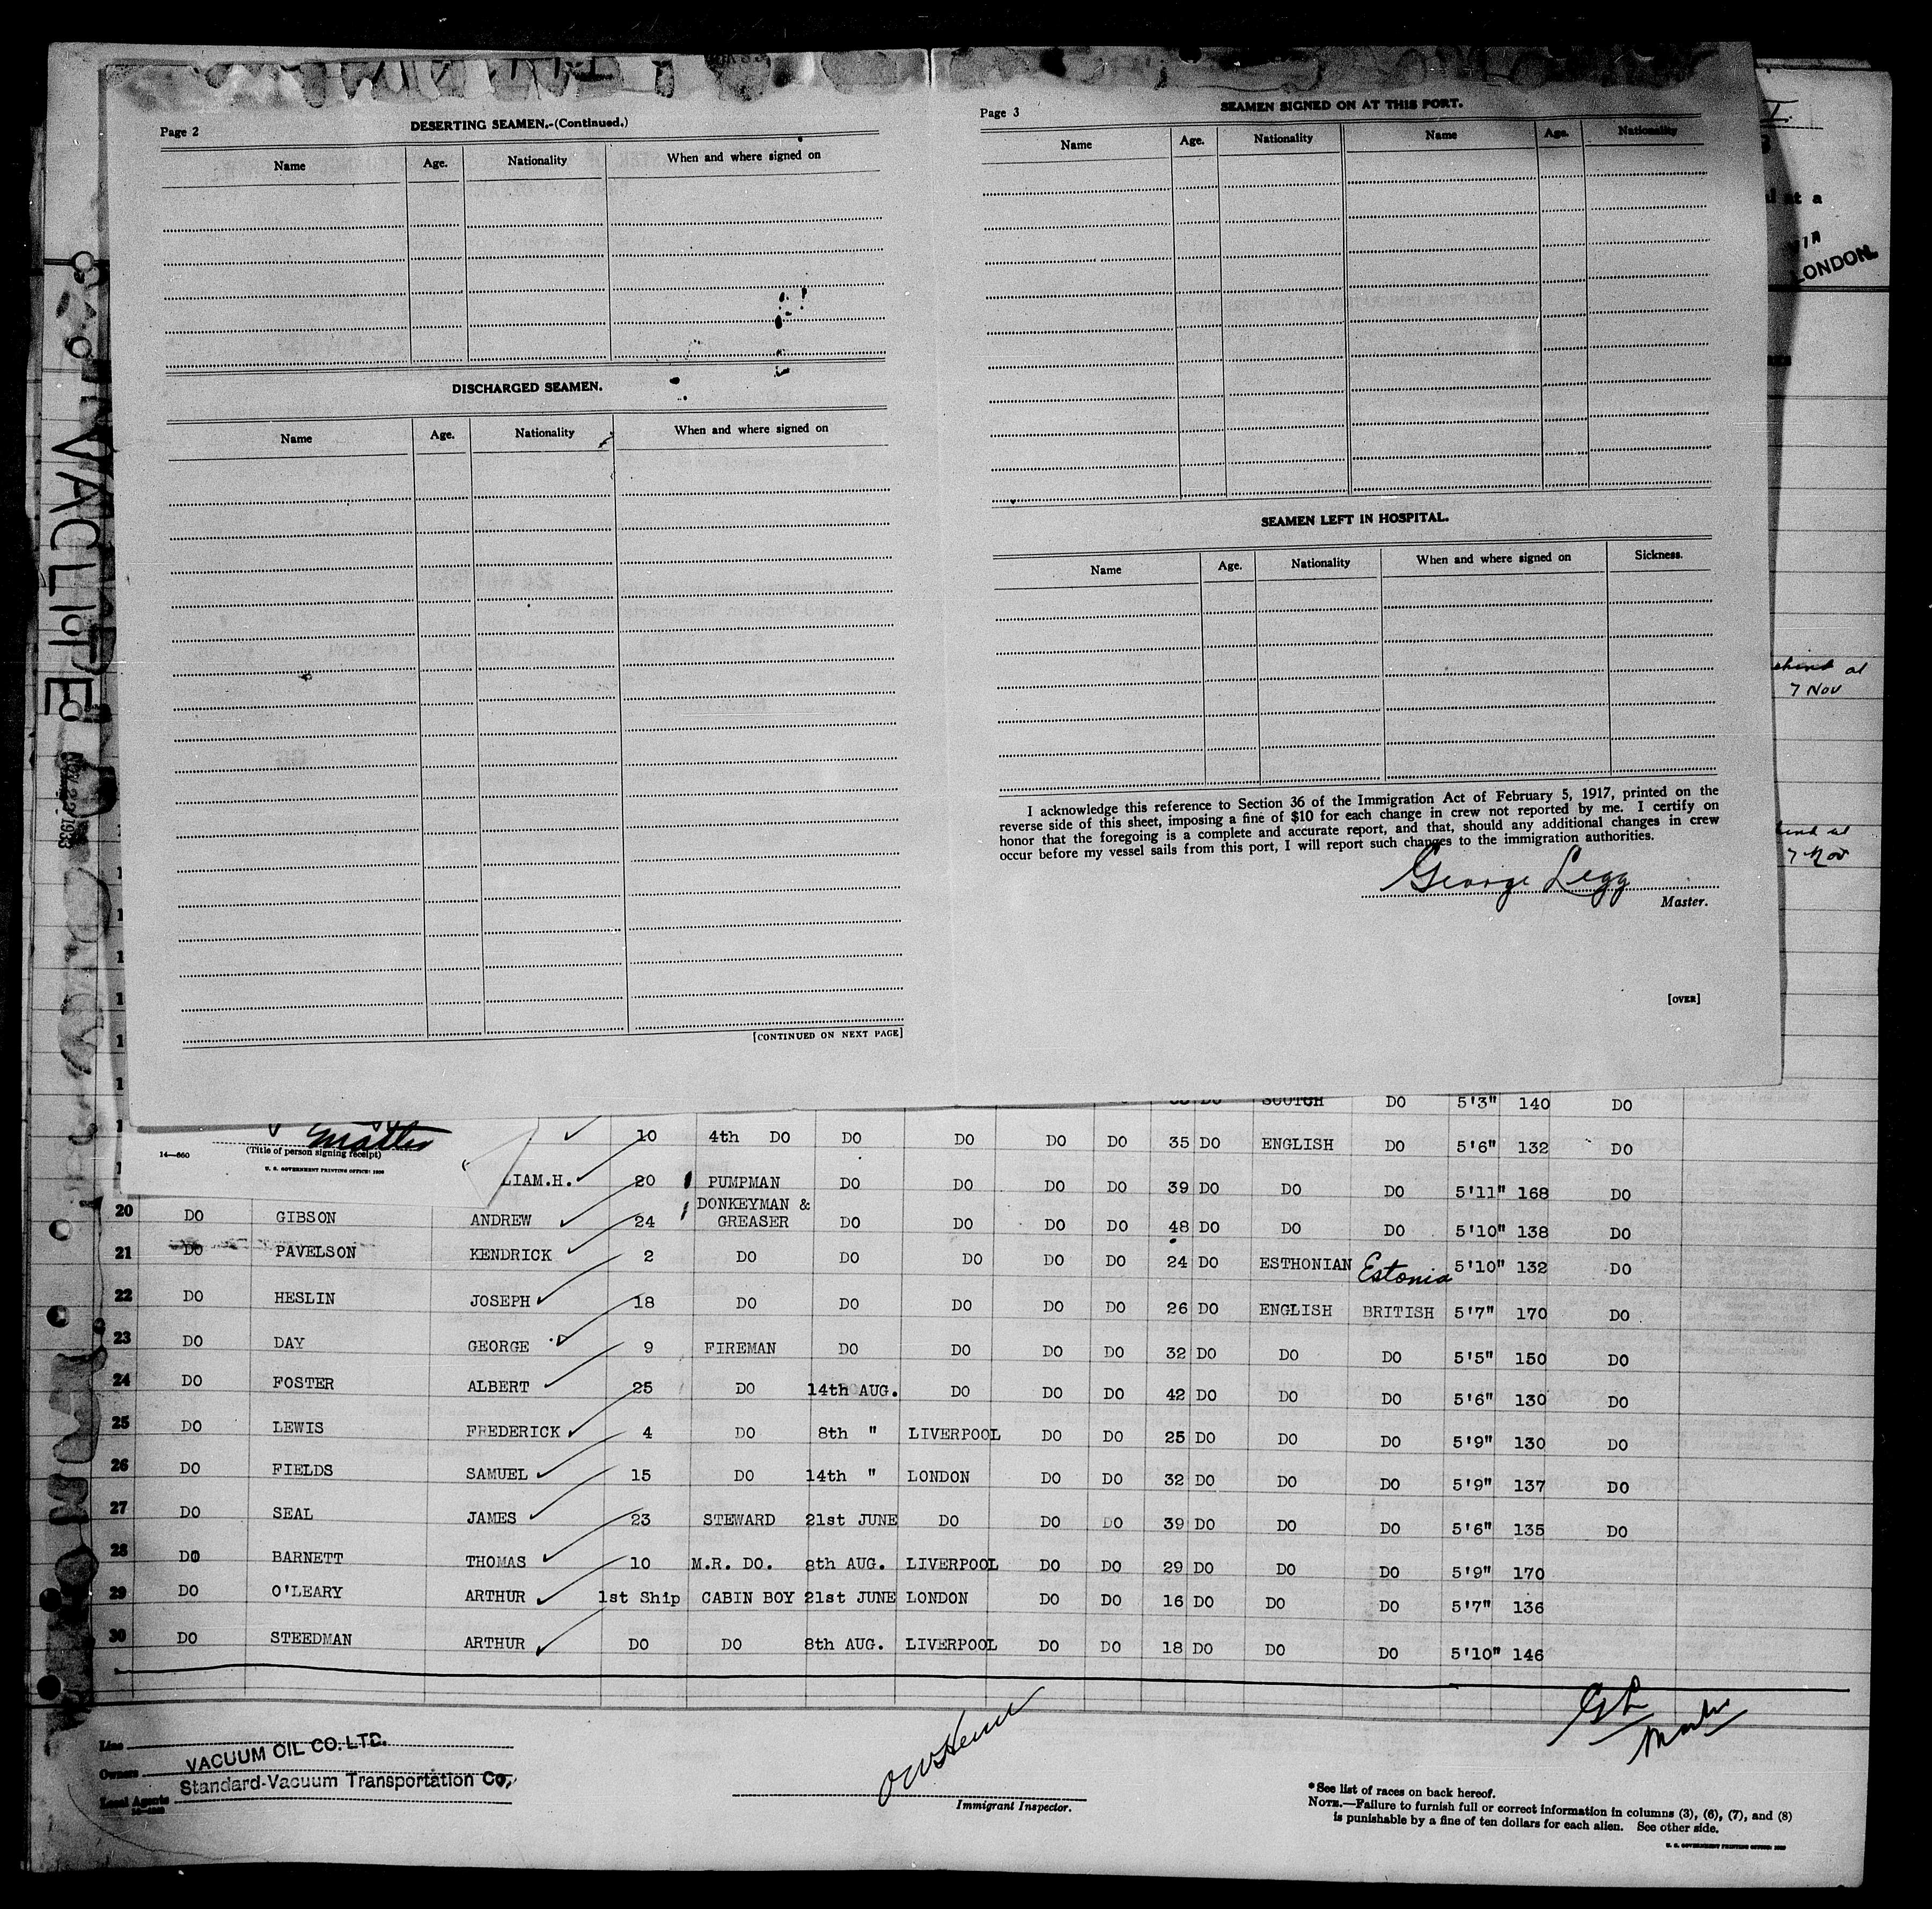 Page 2
DESERTING SEAMEN.-(Continued.)
Name Age. Nationality When and where signed on
DISCHARGED SEAMEN.
Name Age. Nationality When and where signed on
[CONTINUED ON NEXT PAGE]
Page 3
SEAMEN SIGNED ON AT THIS PORT.
Name Age. Nationality Name Age. Nationality
SEAMEN LEFT IN HOSPITAL.
Name Age. Nationality When and where signed on Sickness.
I acknowledge this reference to Section 36 of the Immigration Act of February 5, 1917, printed on the
reverse side of this sheet, imposing a fine of $10 for each change in crew not reported by me. I certify on
honor that the foregoing is a complete and accurate report, and that, should any additional changes in crew
occur before my vessel sails from this port, I will report such changes to the immigration authorities.
George Legg
Master.
[OVER]
at a
LONDON
at
7 Nov
7 Nov
VACLITE
NOV 22 1933
SCOTCH DO 5'3" 140 DO
Master
(Title of person signing receipt)
14—660
U. S. GOVERNMENT PRINTING OFFICE: 1930
10 4th DO DO DO DO DO 35 DO ENGLISH DO 5'6" 132 DO
LIAM.H. 20 PUMPMAN DO DO DO DO 39 DO DO DO 5'11" 168 DO
20 DO GIBSON ANDREW 24 DONKEYMAN & GREASER DO DO DO DO 48 DO DO DO 5'10" 138 DO
21 DO PAVELSON KENDRICK 2 DO DO DO DO DO 24 DO ESTHONIAN Estonia 5'10" 132 DO
22 DO HESLIN JOSEPH 18 DO DO DO DO DO 26 DO ENGLISH BRITISH 5'7" 170 DO
23 DO DAY GEORGE 9 FIREMAN DO DO DO DO 32 DO DO DO 5'5" 150 DO
24 DO FOSTER ALBERT 25 DO 14th AUG. DO DO DO 42 DO DO DO 5'6" 130 DO
25 DO LEWIS FREDERICK 4 DO 8th " LIVERPOOL DO DO 25 DO DO DO 5'9" 130 DO
26 DO FIELDS SAMUEL 15 DO 14th " LONDON DO DO 32 DO DO DO 5'9" 137 DO
27 DO SEAL JAMES 23 STEWARD 21st JUNE DO DO DO 39 DO DO DO 5'6" 135 DO
28 DO BARNETT THOMAS 10 M.R. DO. 8th AUG. LIVERPOOL DO DO 29 DO DO DO 5'9" 170
29 DO O'LEARY ARTHUR 1st Ship CABIN BOY 21st JUNE LONDON DO DO 16 DO DO DO 5'7" 136
30 DO STEEDMAN ARTHUR DO DO 8th AUG. LIVERPOOL DO DO 18 DO DO DO 5'10" 146
GL
Master
Line
Owners VACUUM OIL CO. LTD.
Local Agents Standard-Vacuum Transportation Co.
Immigrant Inspector.
*See list of races on back hereof.
NOTE.—Failure to furnish full or correct information in columns (3), (6), (7), and (8)
is punishable by a fine of ten dollars for each alien. See other side.